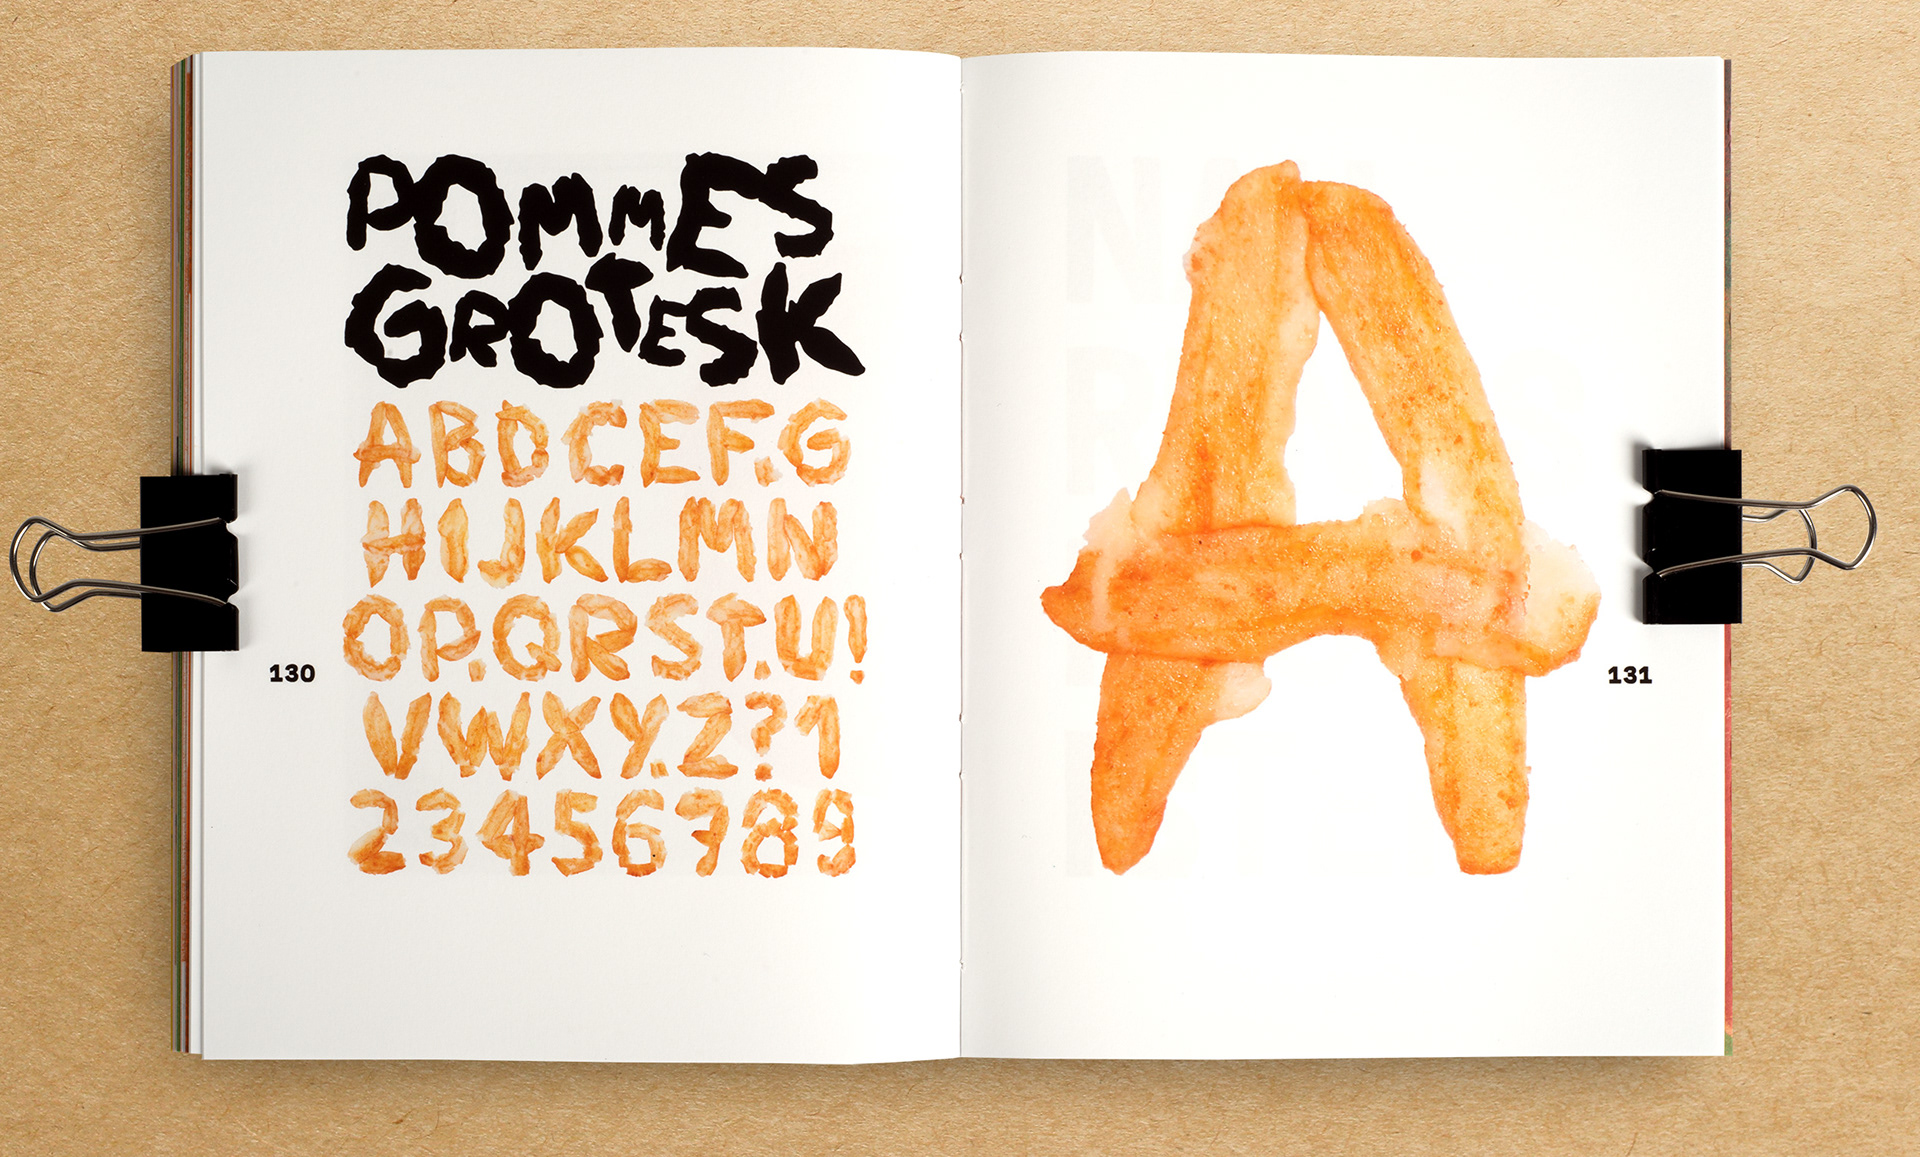 POMMES
GROTESK
ABDCEF.G
HIJKLMN
OP.QRST.U!
VWXY.Z?1
23456789
130
A
131